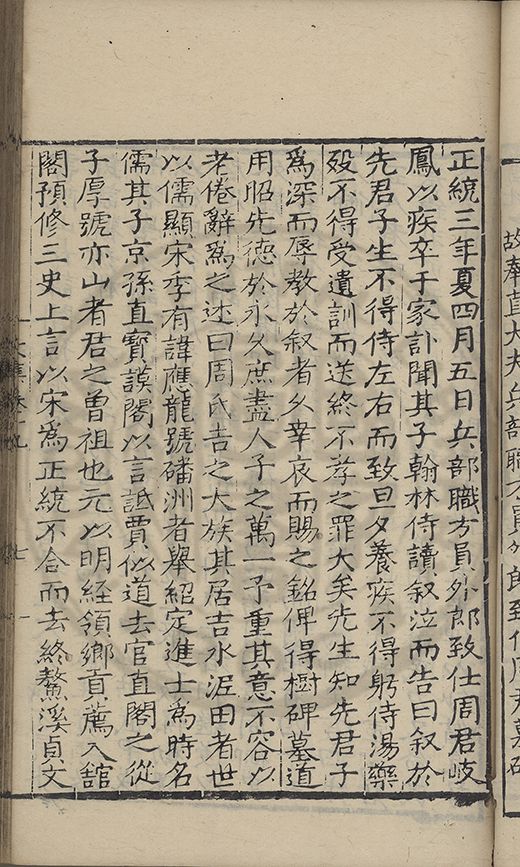 故奉直大夫兵部職方員外郎致仕周君墓碑
正統三年夏四月五日兵部職方員外郎致仕周君岐
鳳以疾卒于家訃聞其子翰林侍讀叙泣而告曰叙於
先君子生不得侍左右而致旦夕養疾不得躬侍湯藥
歿不得受遺訓而送終不孝之罪大矣先生知先君子
為深而辱教於叙者久幸哀而賜之銘俾得樹碑墓道
用昭先德於永久庶盡人子之萬一予重其意不容以
老倦辭為之述曰周氏吉之大族其居吉水泥田者世
以儒顯宋季有諱應龍號磻洲者舉紹定進士為時名
儒其子京孫直寶謨閣以言詆賈似道去官直閣之從
子厚號亦山者君之曾祖也元以明經領鄉貢薦入舘
閣預修三史上言以宋為正統不合而去終鰲溪貞文